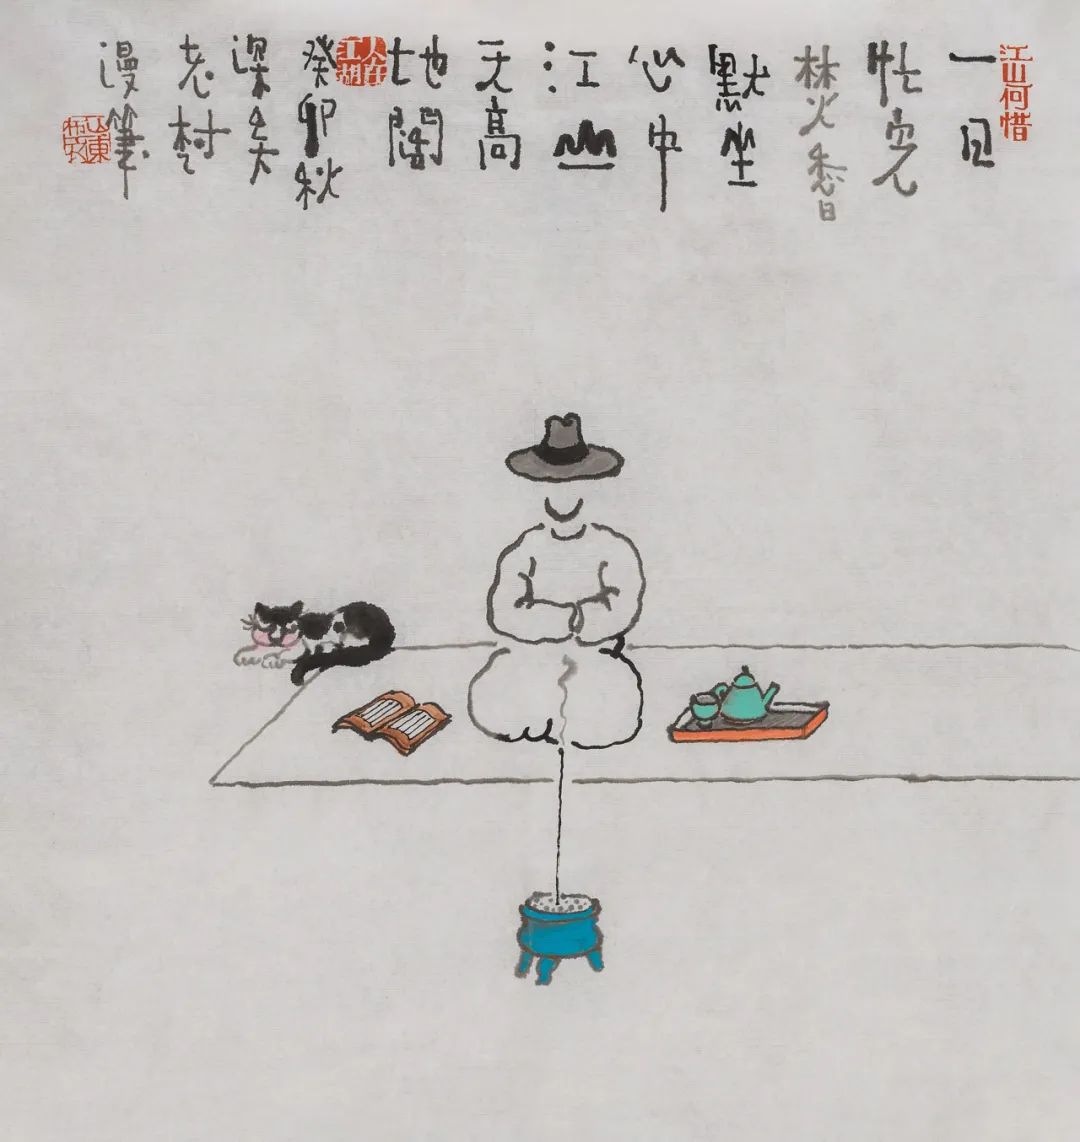 江山何惜
一日
忙完
焚香
默坐
心中
江山
天高
地阔
人在江湖
癸卯秋
深矣
老树
漫笔